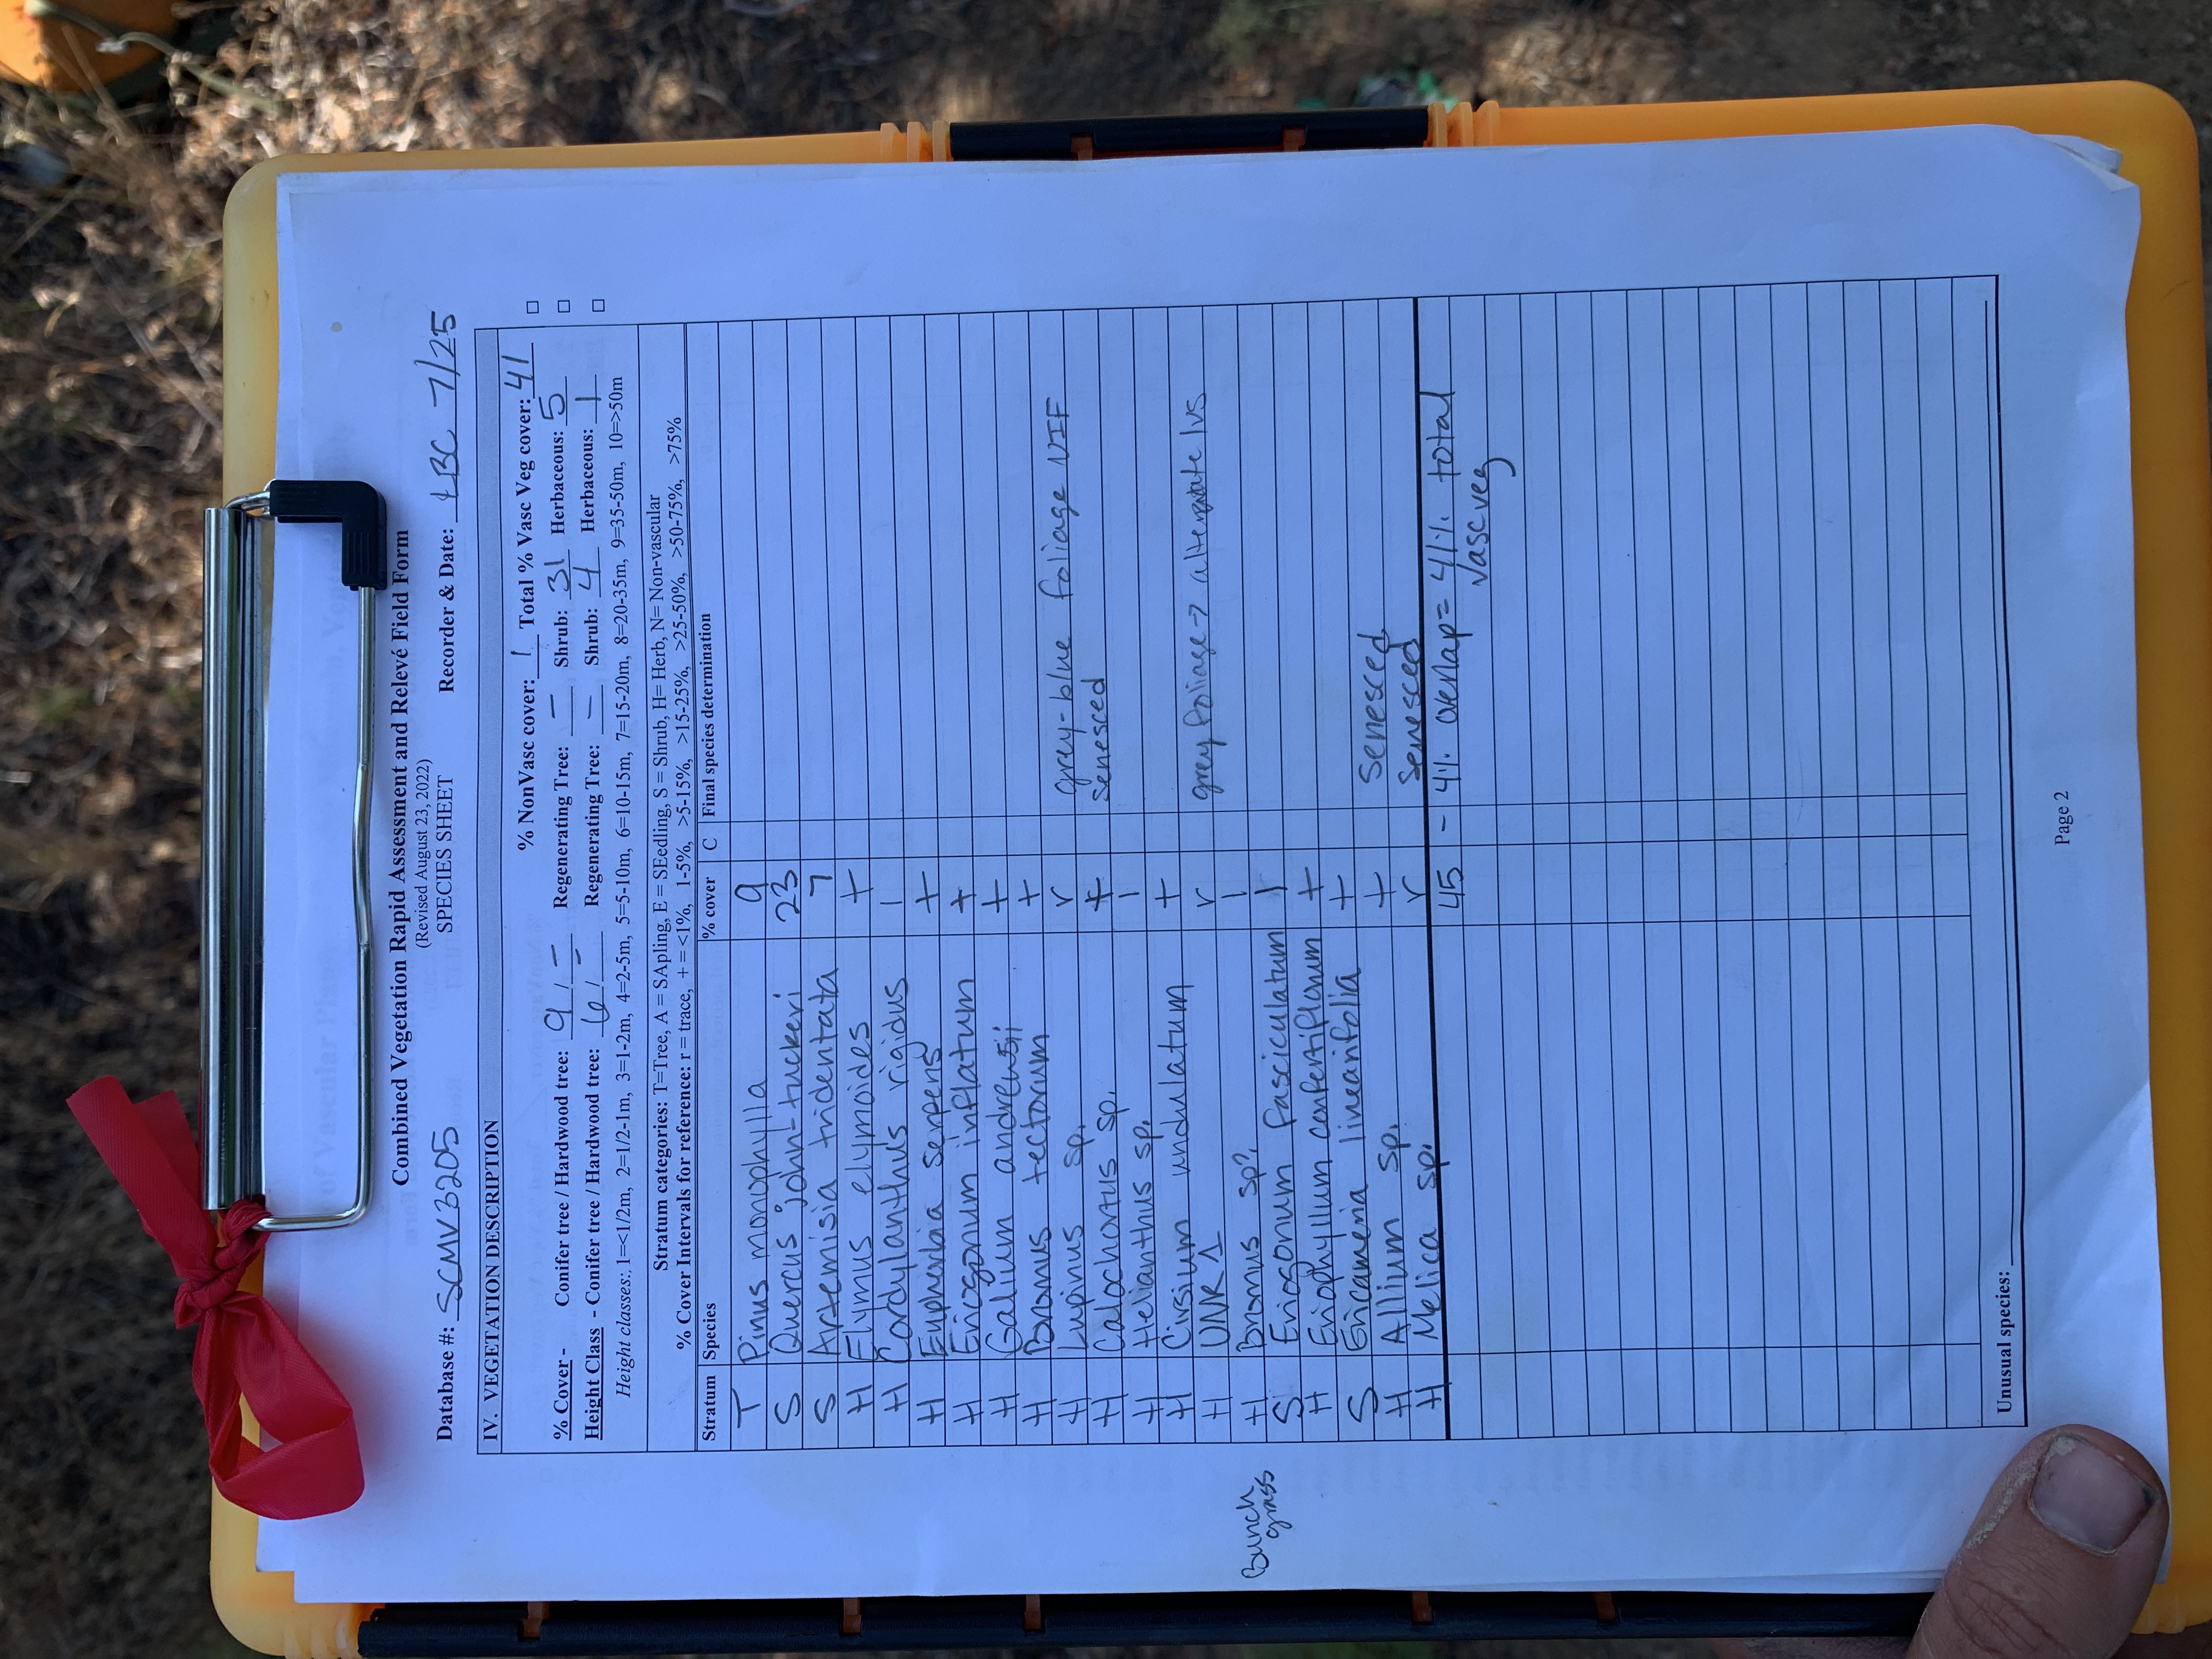 Combined Vegetation Rapid Assessment and Relevé Field Form
(Revised August 23, 2022)
SPECIES SHEET
Database #: SCMV3205 Recorder & Date: LBC 7/25
IV. VEGETATION DESCRIPTION
% NonVasc cover: 1 Total % Vasc Veg cover: 41
% Cover - Conifer tree / Hardwood tree: 9 / - Regenerating Tree: - Shrub: 31 Herbaceous: 5
Height Class - Conifer tree / Hardwood tree: 6 / - Regenerating Tree: - Shrub: 4 Herbaceous: 1
Height classes:, 1=<1/2m, 2=1/2-1m, 3=1-2m, 4=2-5m, 5=5-10m, 6=10-15m, 7=15-20m, 8=20-35m, 9=35-50m, 10=>50m
Stratum categories: T=Tree, A = SApling, E = SEedling, S = Shrub, H= Herb, N= Non-vascular
% Cover Intervals for reference: r = trace, + = <1%, 1-5%, >5-15%, >15-25%, >25-50%, >50-75%, >75%
Stratum Species % cover C Final species determination
T Pinus monophylla 9
S Quercus john-tuckeri 23
S Artemisia tridentata 7
H Elymus elymoides +
H Cordylanthus rigidus 1
H Euphorbia serpens +
H Eriogonum inflatum +
H Galium andrewsii +
H Bromus tectorum +
H Lupinus sp. r grey-blue foliage NIF
H Calochortus sp. + senesced
H Helianthus sp. 1
H Cirsium undulatum +
H UNK 1 r grey foliage → alternate lvs
Bunch grass H Bromus sp?. 1
S Eriogonum fasciculatum 1
H Eriophyllum confertiflorum +
S Ericameria linearifolia +
H Allium sp. + senesced
H Melica sp. r senesced
45 - 4% overlap = 41% total
vasc veg
Unusual species:
Page 2